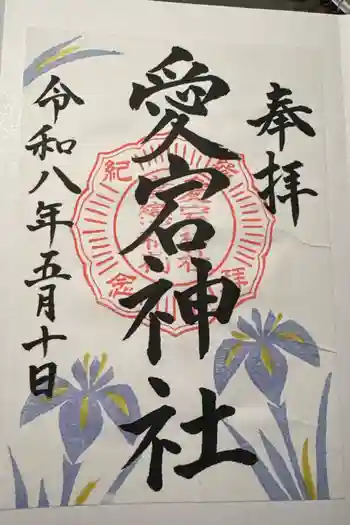 奉拝
愛宕神社
令和八年五月十日